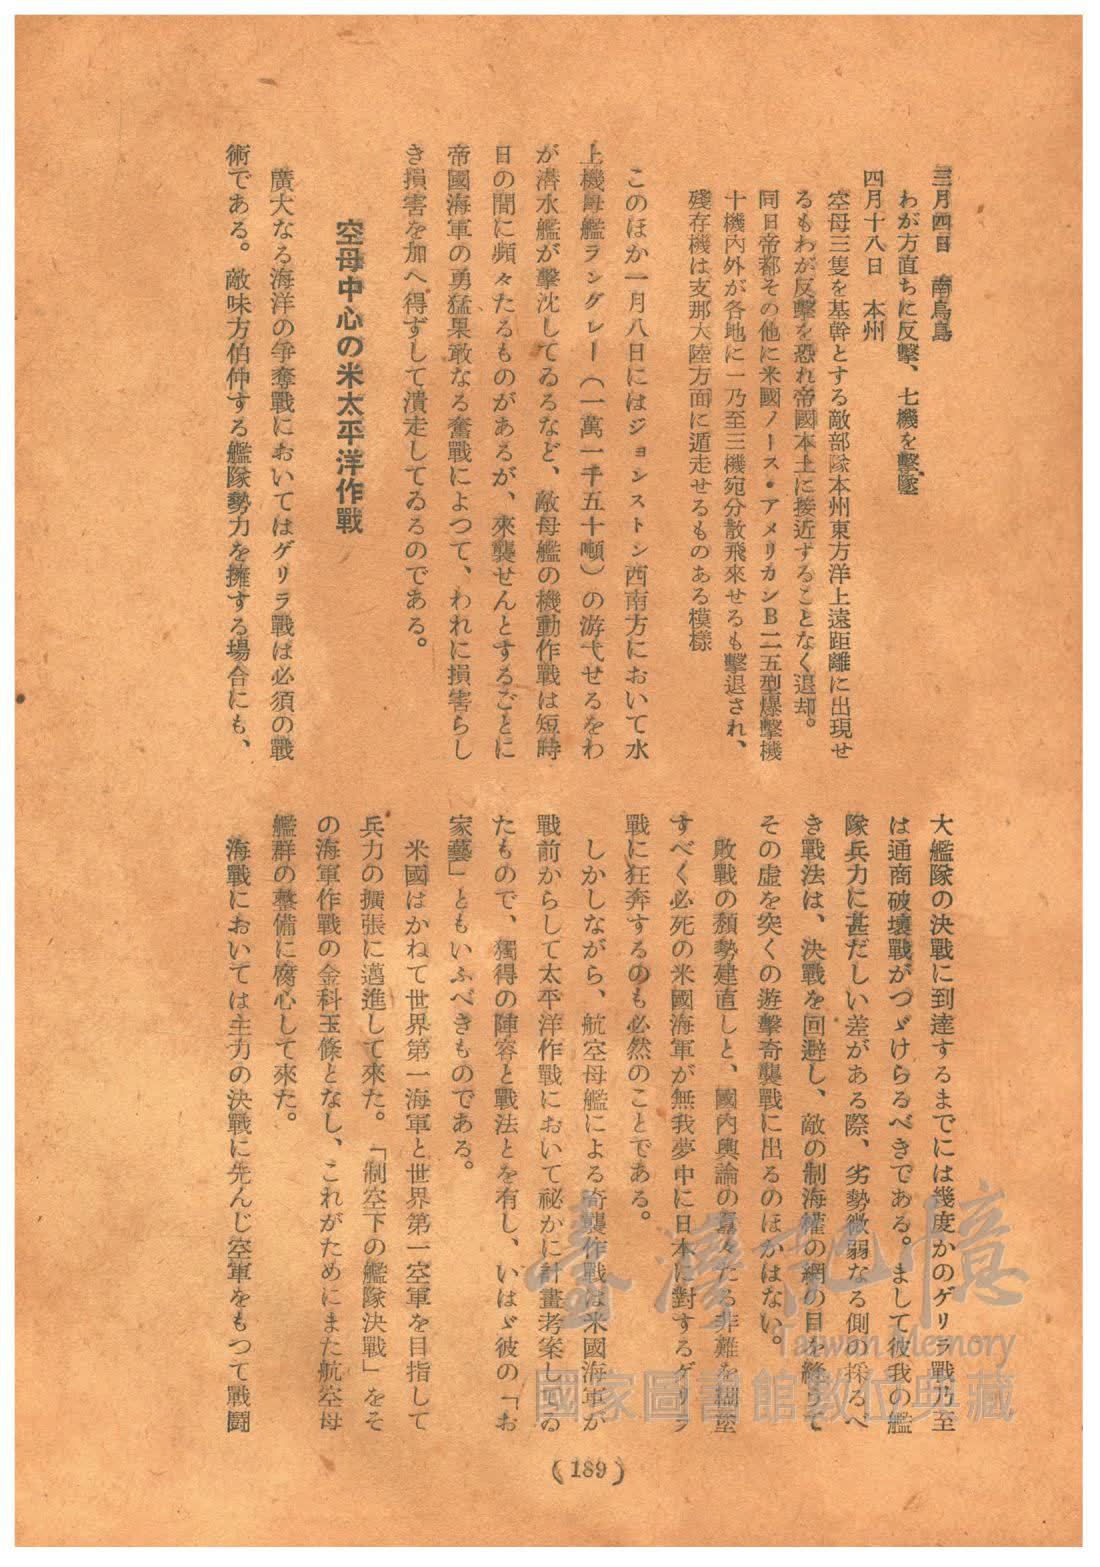 三月四日　南鳥島
わが方直ちに反擊、七機を擊墜
四月十八日　本州
空母三隻を基幹とする敵部隊本州東方洋上遠距離に出現せ
るもわが反擊を恐れ帝國本土に接近することなく退却。
同日帝都その他に米國ノース・アメリカンB二五型爆擊機
十機內外が各地に一乃至三機宛分散飛來せるも擊退され、
殘存機は支那大陸方面に遁走せるものある模樣
このほか一月八日にはジョンストン西南方において水
上機母艦ラングレー（一萬一千五十噸）の游弋せるをわ
が潜水艦が擊沈してゐるなど、敵母艦の機動作戰は短時
日の間に頻々たるものがあるが、來襲せんとするごとに
帝國海軍の勇猛果敢なる奮戰によつて、われに損害らし
き損害を加へ得ずして潰走してゐるのである。
空母中心の米太平洋作戰
廣大なる海洋の爭奪戰においてはゲリラ戰は必須の戰
術である。敵味方伯仲する艦隊勢力を擁する場合にも、
大艦隊の決戰に到達するまでには幾度かのゲリラ戰乃至
は通商破壞戰がつゞけらるべきである。まして彼我の艦
隊兵力に甚だしい差がある際、劣勢微弱なる側の採るべ
き戰法は、決戰を回避し、敵の制海權の網の目を縫うて
その虛を突くの遊擊奇襲戰に出るのほかはない。
敗戰の頽勢建直しと、國內輿論の囂々たる非難を糊塗
すべく必死の米國海軍が無我夢中に日本に對するゲリラ
戰に狂奔するのも必然のことである。
しかしながら、航空母艦による奇襲作戰は米國海軍が
戰前からして太平洋作戰において祕かに計畫考案してゐ
たもので、獨得の陣容と戰法とを有し、いはゞ彼の「お
家藝」ともいふべきものである。
米國はかねて世界第一海軍と世界第一空軍を目指して
兵力の擴張に邁進して來た。「制空下の艦隊決戰」をそ
の海軍作戰の金科玉條となし、これがためにまた航空母
艦群の整備に腐心して來た。
海戰においては主力の決戰に先んじ空軍をもつて戰鬪
(189)
臺灣記憶
Taiwan Memory
國家圖書館數位典藏